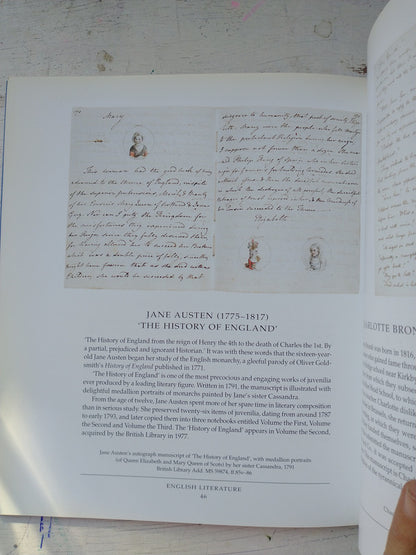 Mary
This woman had the good luck of being
advanced to the throne of England, inspite
of the superior pretensions, Merit & Beauty
of her Cousins Mary Queen of Scotland & Jane
Grey. Nor can I pity the Kingdom for
the misfortunes they experienced during
her Reign, since they fully deserved them,
for having allowed her to succeed her Brother
which was a double peice of folly, since they
might have foreseen that as she died without
Children, she would be succeeded by that
disgrace to humanity, that pest of society, Eliza-
beth. Many were the people who fell martyrs
to the protestant Religion during her reign;
I suppose not fewer than a dozen. She married
Philip King of Spain who in her Sister's
reign for famous for building Armadas. She died
without issue, & then the dreadful moment came
in which the destroyer of all comfort, the deceitful
Betrayer of trust reposed in her, & the Murderess of
her Cousin succeeded to the Throne.
Elizabeth
JANE AUSTEN (1775–1817)
'THE HISTORY OF ENGLAND'
'The History of England from the reign of Henry the 4th to the death of Charles the 1st. By
a partial, prejudiced and ignorant Historian.' It was with these words that the sixteen-year-
old Jane Austen began her study of the English monarchy, a gleeful parody of Oliver Gold-
smith's History of England published in 1771.
'The History of England' is one of the most precocious and engaging works of juvenilia
ever produced by a leading literary figure. Written in 1791, the manuscript is illustrated with
delightful medallion portraits of monarchs painted by Jane's sister Cassandra.
From the age of twelve, Jane Austen spent more of her spare time in literary composition
than in serious study. She preserved twenty-six items of juvenilia, dating from around 1787
to early 1793, and later copied them into three notebooks entitled Volume the First, Volume
the Second and Volume the Third. The 'History of England' appears in Volume the Second,
acquired by the British Library in 1977.
Jane Austen's autograph manuscript of 'The History of England', with medallion portraits
(of Queen Elizabeth and Mary Queen of Scots) by her sister Cassandra, 1791
British Library Add. MS 59874, ff.85v–86
ENGLISH LITERATURE
46